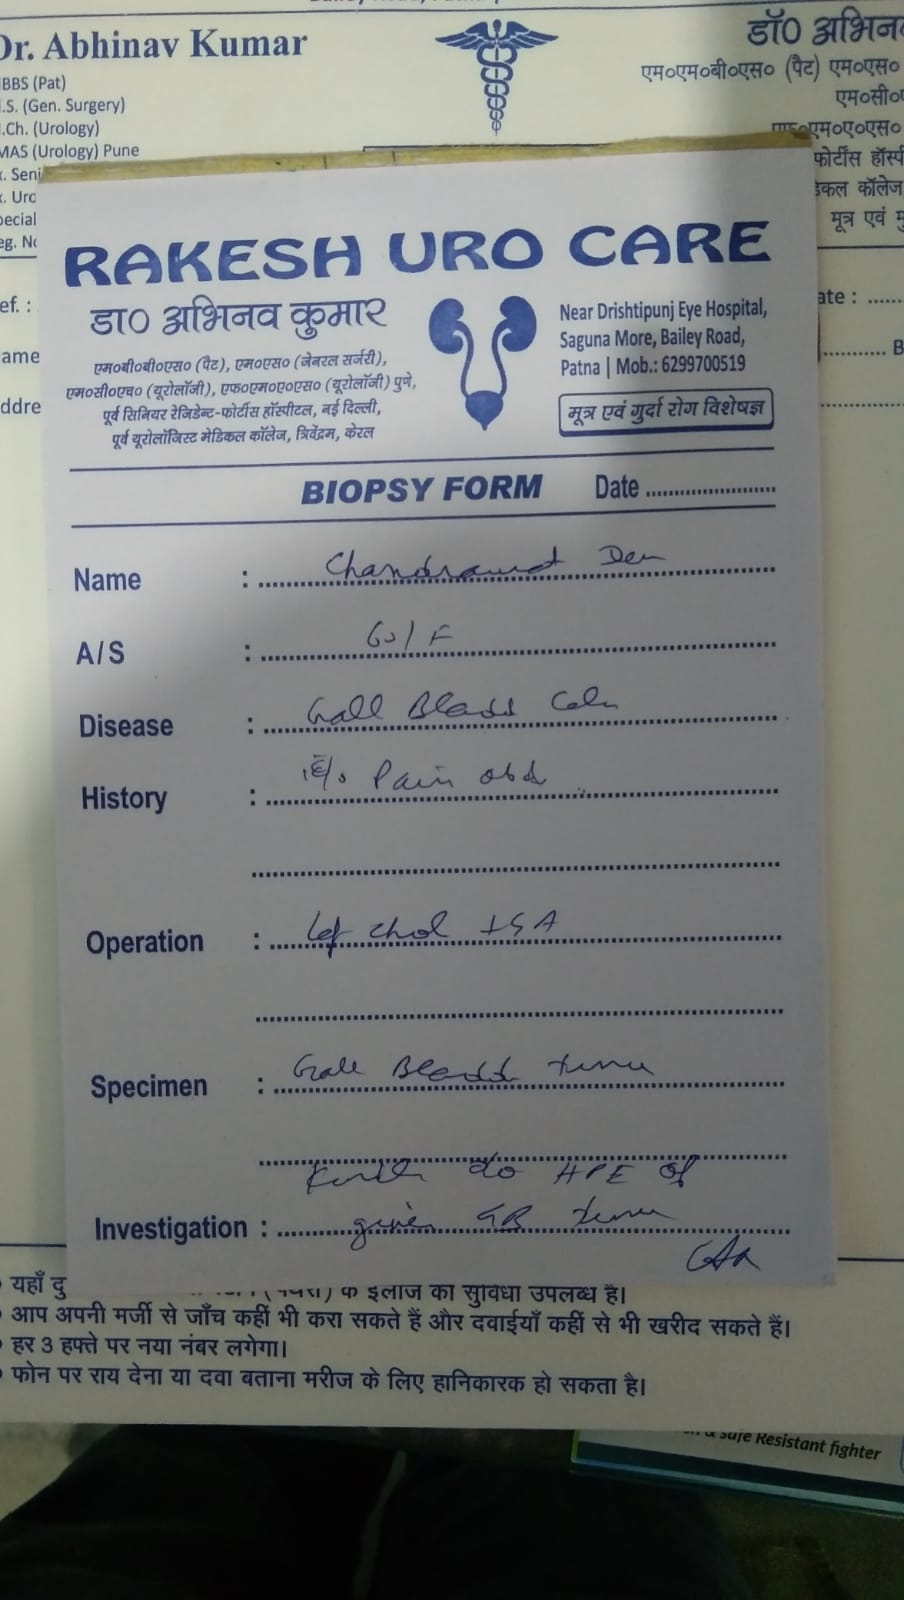 Dr. Abhinav Kumar
BBS (Pat)
.S. (Gen. Surgery)
.Ch. (Urology)
MAS (Urology) Pune
. Seni
. Uro
pecial
eg. No
डॉ० अभिन
एम०एम०बी०एस० (पैट) एम०एस०
एम०सी०ए
एम०ए०एस०
फोर्टीस हॉस्पी
डिकल कॉलेज
मूत्र एवं गु
ef. :
ate : ......
ame
ddre
RAKESH URO CARE
डा० अभिनव कुमार
एम०बी०बी०एस० (पैट), एम०एस० (जेनरल सर्जरी),
एम०सी०एच० (यूरोलॉजी), एफ०एम०ए०एस० (यूरोलॉजी) पुणे,
पूर्व सिनियर रेजिडेन्ट-फोर्टीस हॉस्पीटल, नई दिल्ली,
पूर्व यूरोलॉजिस्ट मेडिकल कॉलेज, त्रिवेंद्रम, केरल
Near Drishtipunj Eye Hospital,
Saguna More, Bailey Road,
Patna | Mob.: 6299700519
मूत्र एवं गुर्दा रोग विशेषज्ञ
BIOPSY FORM Date
Name :
A/S : 60/F
Disease : Gall
History : Pain
Operation : chol
Specimen : Gall
do HPE of
Investigation : given GB
यहाँ दु
के इलाज की सुविधा उपलब्ध है।
आप अपनी मर्जी से जाँच कहीं भी करा सकते हैं और दवाईयाँ कहीं से भी खरीद सकते हैं।
हर 3 हफ्ते पर नया नंबर लगेगा।
फोन पर राय देना या दवा बताना मरीज के लिए हानिकारक हो सकता है।
& safe Resistant fighter